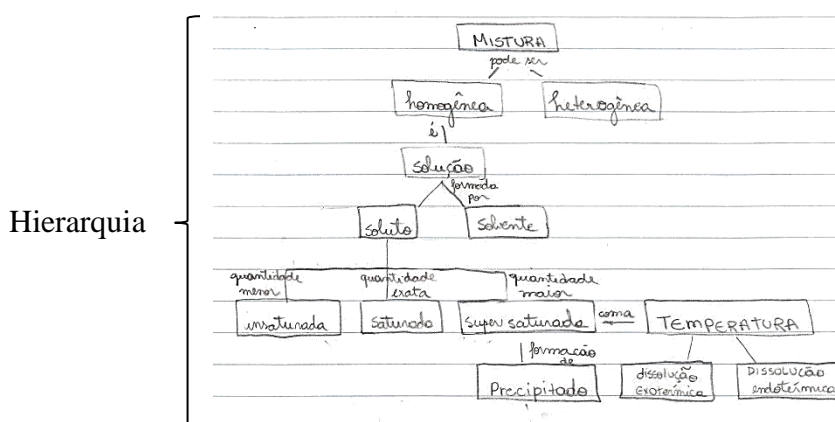 MISTURA
pode ser
homogênea heterogênea
é
Solução
formada
por
Hierarquia
Soluto Solvente
quantidade quantidade quantidade
menor exata maior
insaturada saturada super saturada com a TEMPERATURA
formação
de
Precipitado
dissolução
Exotérmica
DISSOLUÇÃO
endotérmica